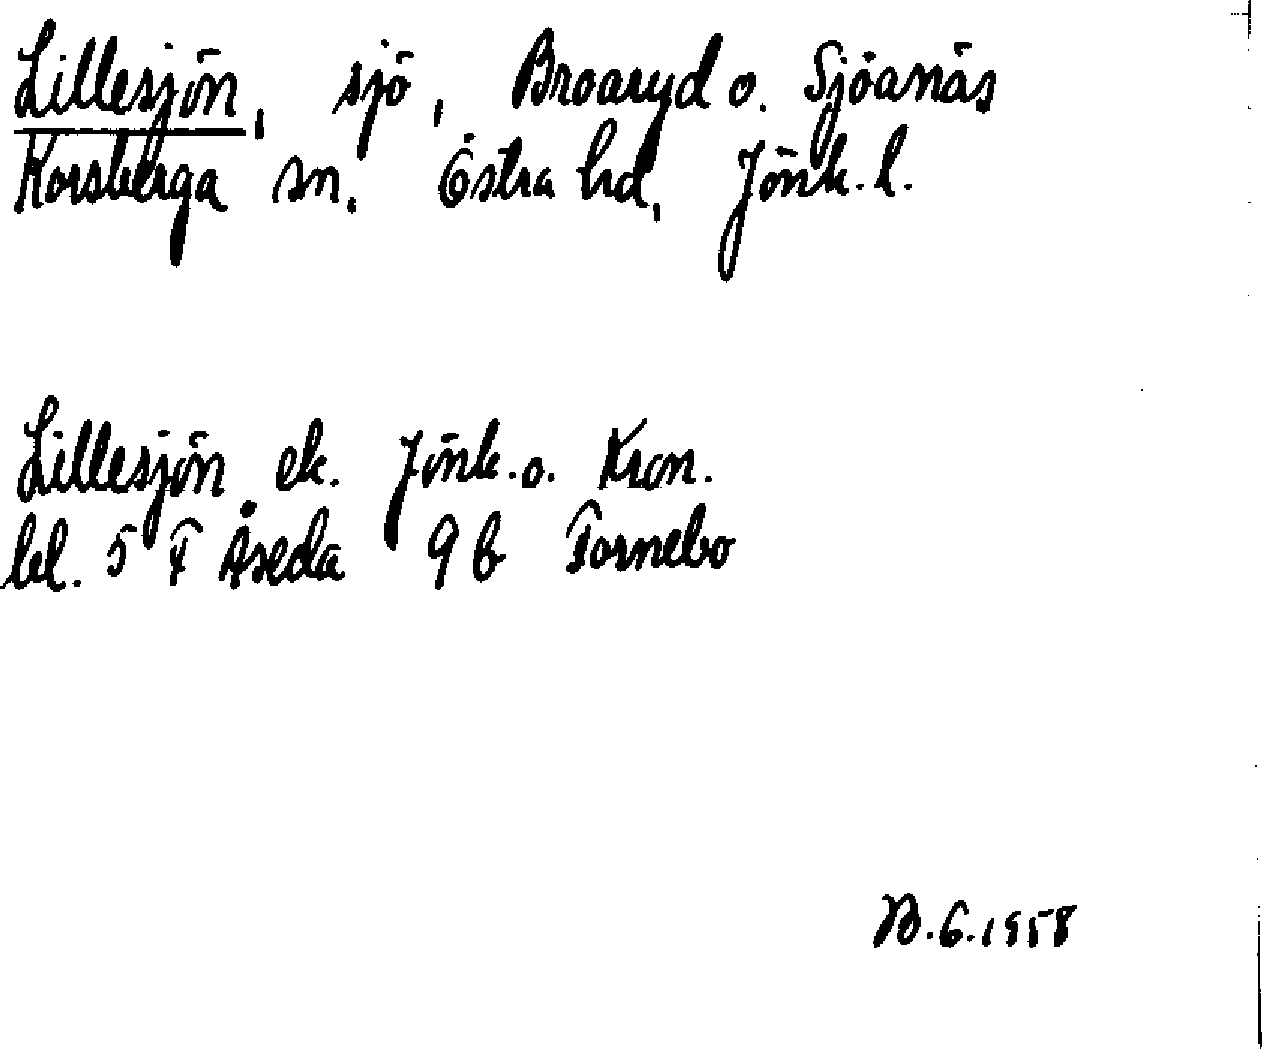 Lillesjön, sjö, Broaryd o. Sjöanäs
Korsberga sn. Östra hd, Jönk. l.
Lillesjön ek. Jönk. o. Kron.
bl. 5 F Åseda 9 b Fornebo
B. G. 1958